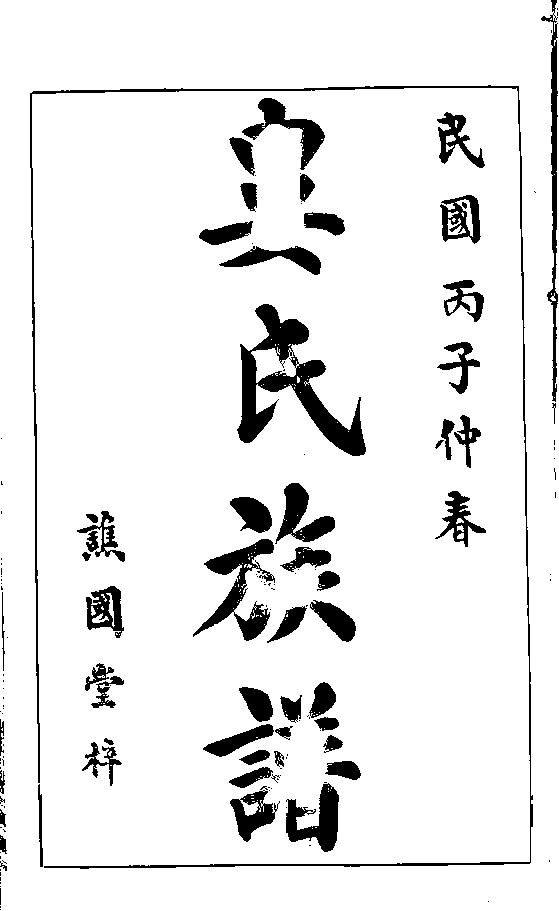 民國丙子仲春
氏族譜
譙國堂梓